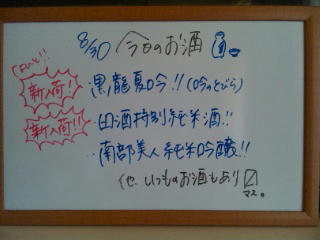 8/30 今日のお酒
ついに!!
新入荷!
黒龍夏吟!! (吟のとびら)
新入荷!!
・田酒特別純米酒!!
・南部美人純米吟醸!!
他、いつものお酒もあり〼
マス。